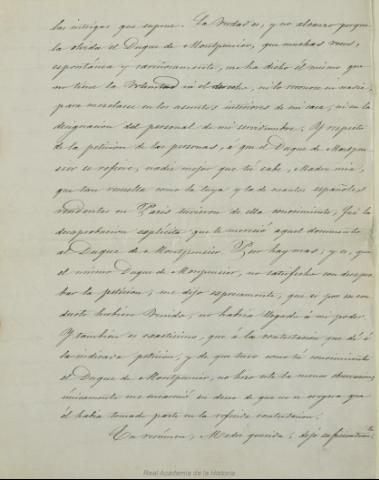 las intrigas que supone. La verdad es, y no alcanzo porque
la olvida el Duque de Montpensier, que muchas veces,
espontánea y cariñosamente, me ha dicho él mismo que
no tiene la voluntad ni el derecho, ni lo reconoce en nadie,
para mezclarse en los asuntos interiores de mi casa, ni en la
designacion del personal de mi servidumbre. Y respecto
de la peticion de las personas, á que el Duque de Montpen
sier se refiere, nadie mejor que tú sabe, Madre mia,
que tan resuelta como la tuya y la de cuantos españoles
residentes en Paris tuvieron de ella conocimiento, fué la
desaprobacion esplícita que le mereció aquel documento
al Duque de Montpensier. Pero hay mas; y es, que
el mismo Duque de Montpensier, no satisfecho con desapro
bar la peticion, me dijo espresamente, que si por su con
ducto hubiera venido, no habria llegado á mi poder.
Y tambien es exactísimo, que á la contestacion que dí á
la indicada peticion, y de que tuvo como tú conocimiento
el Duque de Montpensier, no hizo este la menor observacion;
únicamente me encareció su deseo de que no se creyera que
él habia tomado parte en la referida contestacion.
En resúmen, Madre querida, dejo suficientemte
Real Academia de la Historia